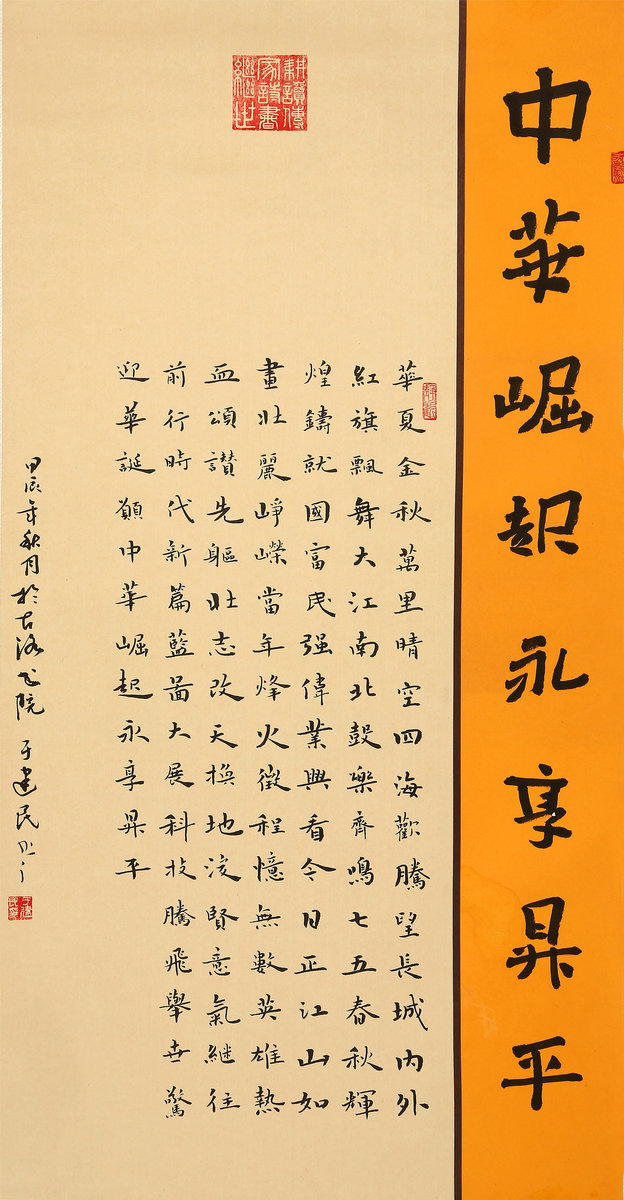 中華崛起永享昇平
耕讀傳
家詩書
繼世
華夏金秋萬里晴空四海歡騰望長城內外
紅旗飄舞大江南北鼓樂齊鳴七五春秋輝
煌鑄就國富民强偉業興看今日正江山如
畫壯麗崢嶸當年烽火徵程憶無數英雄熱
血頌讚先軀壯志改天換地後賢意氣継往
前行時代新篇藍圖大展科技騰飛舉世驚
迎華誕願中華崛起永享昇平
甲辰年秋月於古洛院于建民